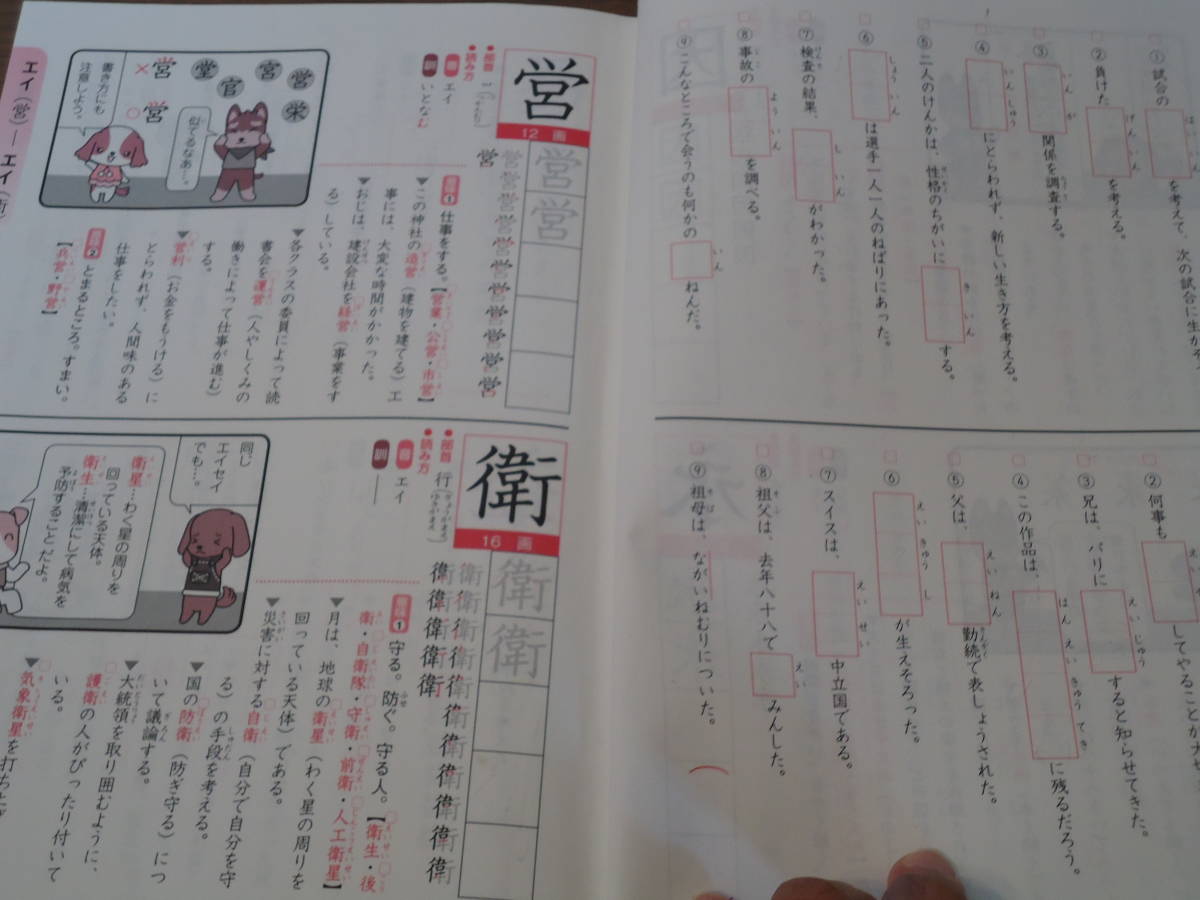 ① 試合の
を考えて、次の試合に生か
② 負けた げんいん を考える。
③ いんが 関係を調査する。
④ いんしゅう にとらわれず、新しい生き方を考える。
⑤ 二人のけんかは、性格のちがいに きいん する。
⑥ しょういん は選手一人一人のねばりにあった。
⑦ 検査の結果、 しいん がわかった。
⑧ 事故の よういん を調べる。
⑨ こんなところで会うのも何かの いん ねんだ。
② 何事も
してやることが大せ
③ 兄は、パリに えいじゅう すると知らせてきた。
④ この作品は、 はんえいきゅうてき に残るだろう。
⑤ 父は、 えいねん 勤続で表しょうされた。
⑥ えいきゅうし が生えそろった。
⑦ スイスは、 えいせい 中立国である。
⑧ 祖父は、去年八十八で えい みんした。
⑨ 祖母は、ながいねむりについた。
エイ(営)—エイ(衛)
営
12画
部首
読み方
音 エイ
訓 いとなむ
意味1 仕事をする。【営業・公営・市営】
▼この神社の造営(建物を建てる)工
事には、大変な時間がかかった。
▼おじは、建設会社を経営(事業をす
る)している。
▼各クラスの委員によって読
書会を運営(人やしくみの
働きによって仕事が進む)
する。
▼営利(お金をもうける)に
とらわれず、人間味のある
仕事をしたい。
意味2 とまるところ。すまい。
【兵営・野営】
営 宮 栄 官 堂
似てるなあ…。
×営
○営
書き方にも
注意しよう。
衛
16画
部首 行
読み方
音 エイ
訓 —
意味1 守る。防ぐ。守る人。【衛生・後
衛・自衛隊・守衛・前衛・人工衛星】
▼月は、地球の衛星(わく星の周りを
回っている天体)である。
▼災害に対する自衛(自分で自分を守
る)の手段を考える。
▼国の防衛(防ぎ守る)につ
いて議論する。
▼大統領を取り囲むように、
護衛の人がぴったり付いて
いる。
▼気象衛星を打ち上げ
同じ
エイセイ
でも…。
衛星…わく星の周りを
回っている天体。
衛生…清潔にして病気を
予防すること だよ。